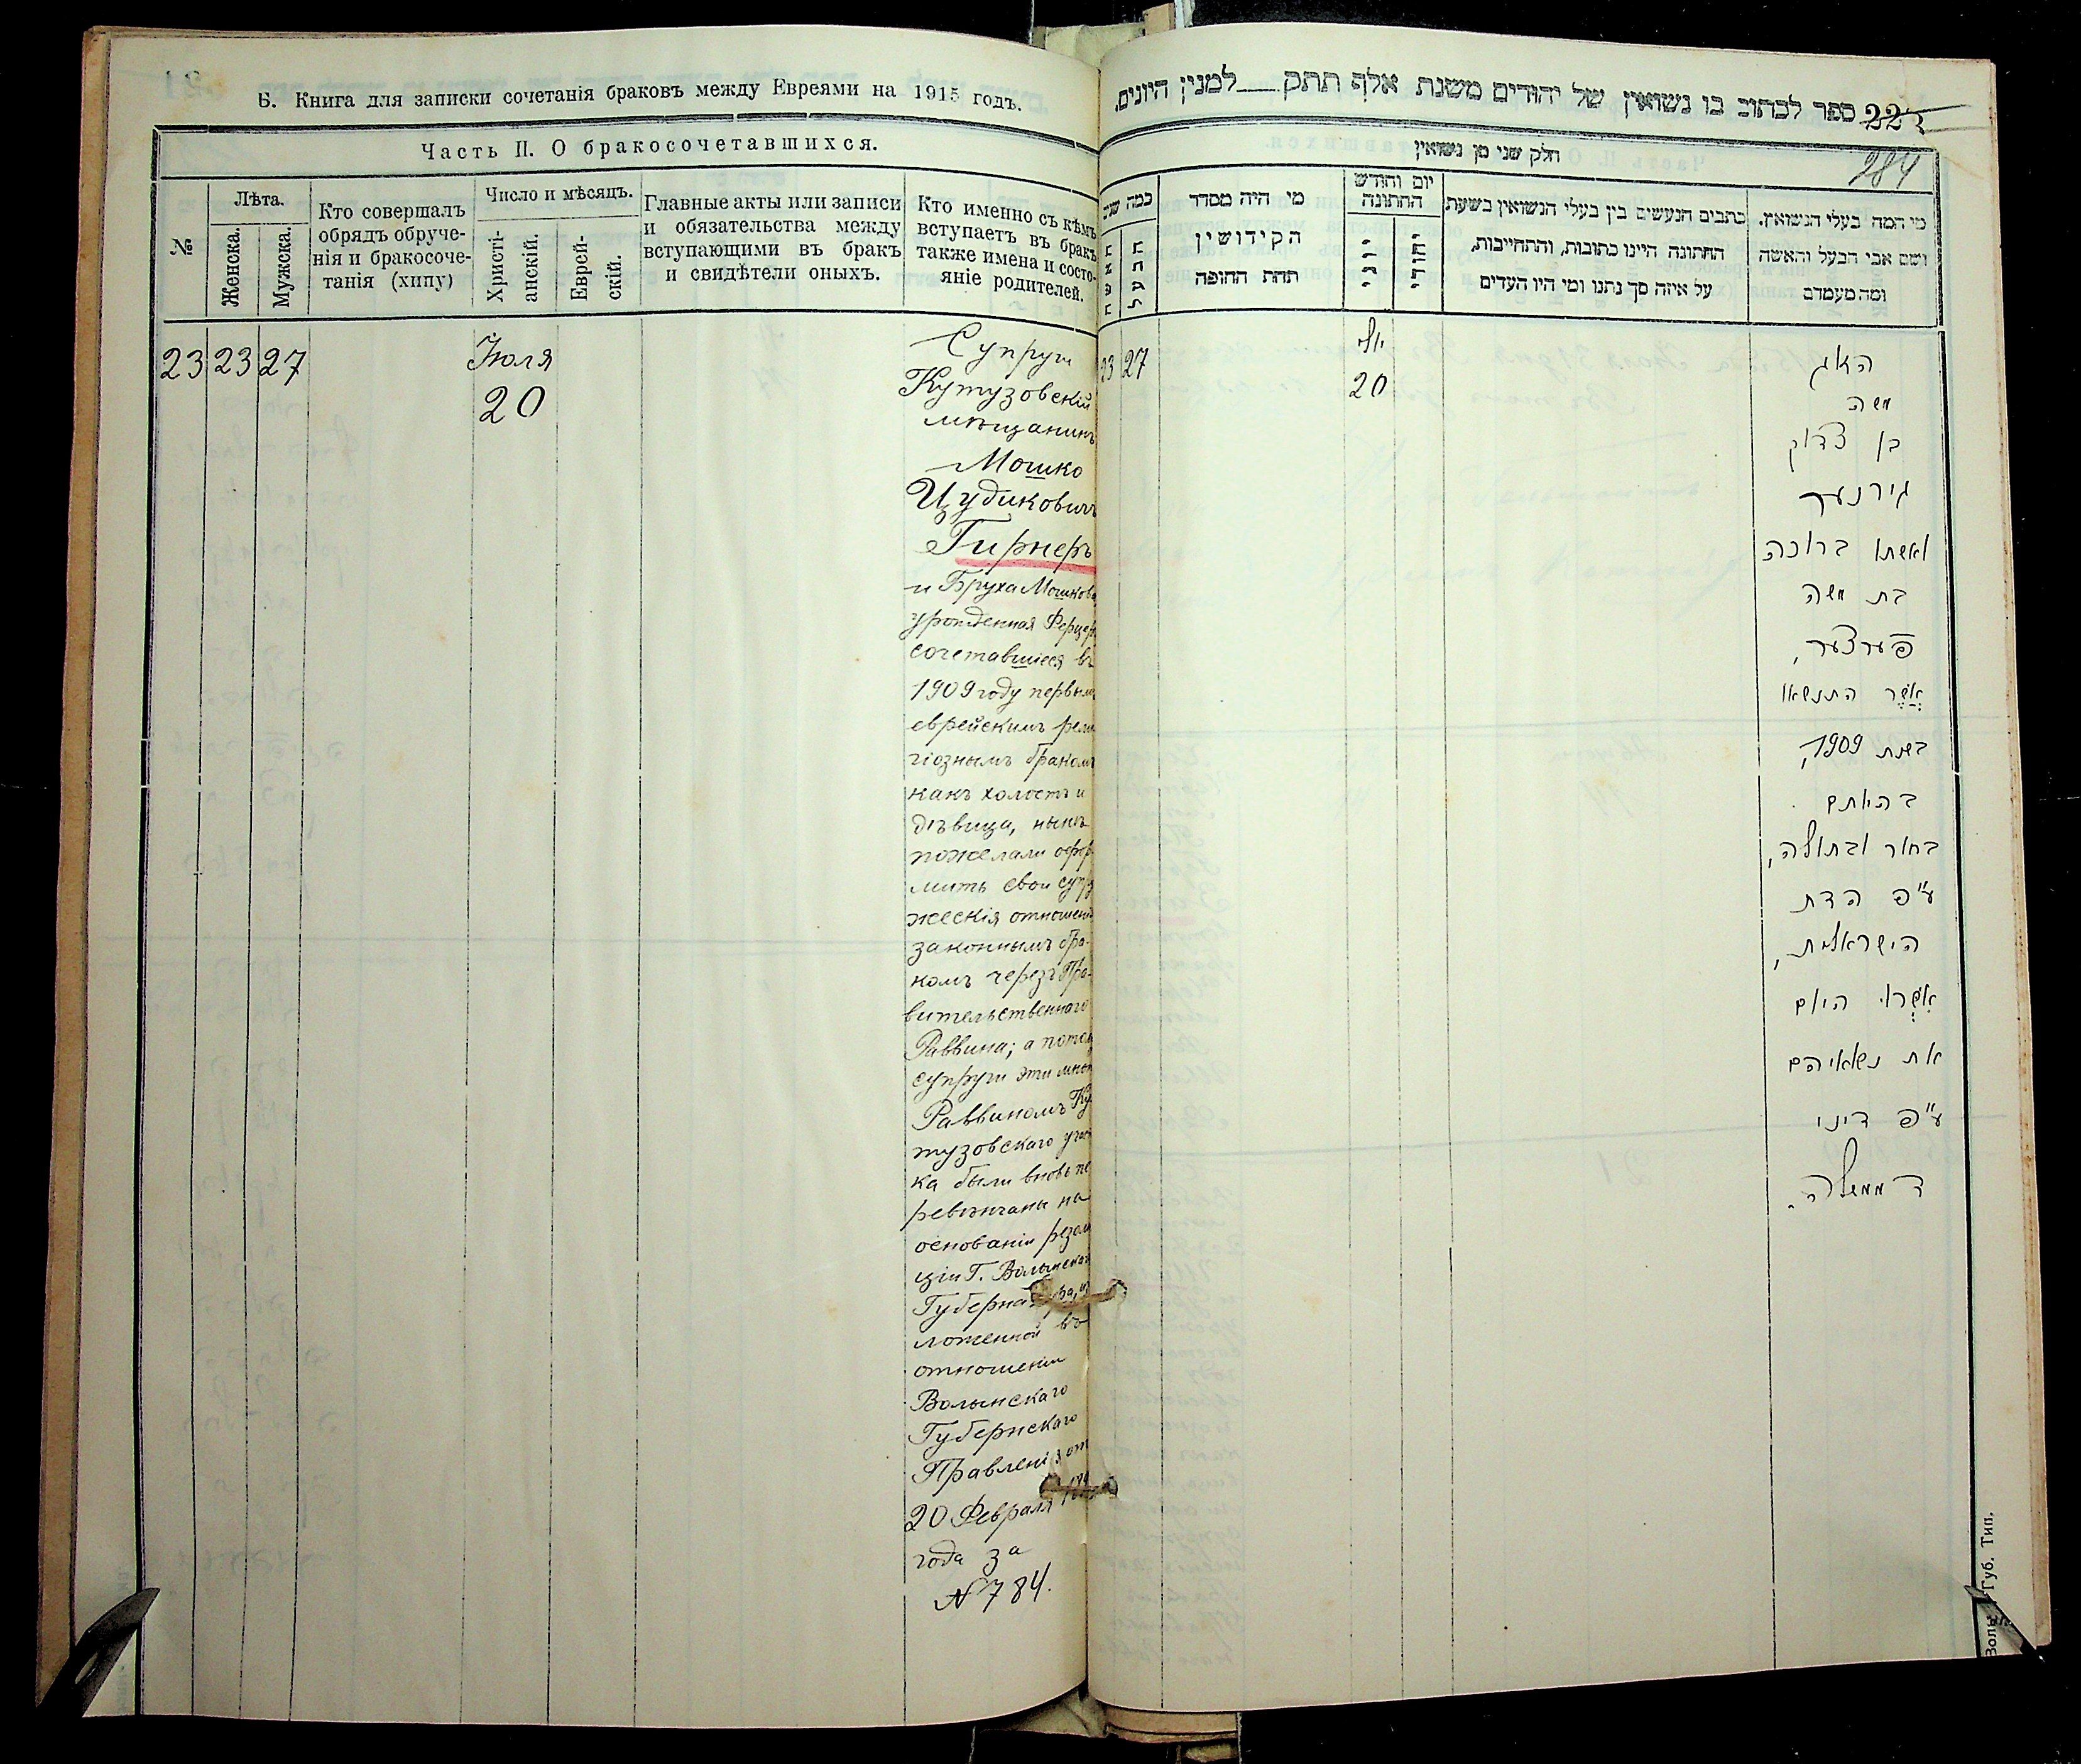 Б. Книга для записки сочетанія браковъ между Евреями на 1915 годъ.
Часть II. О бракосочетавшихся.
№
Лѣта.
Женска.
Мужска.
Кто совершалъ
обрядъ обруче-
нія и бракосоче-
танія (хипу)
Число и мѣсяцъ.
Христі-
анскій.
Еврей-
скій.
Главные акты или записи
и обязательства между
вступающими въ бракъ
и свидѣтели оныхъ.
Кто именно съ кѣмъ
вступаетъ въ бракъ
также имена и состо-
яніе родителей.
23 23 27
Іюля
20
Супруги
Кутузовскій
мѣщанинъ
Мошко
Цудиковичъ
Гирнеръ
и Бруха Мошкова
урожденная Ферцер
сочетавшіеся въ
1909 году первымъ
еврейскимъ рели
гіознымъ бракомъ
какъ холостъ и
дѣвица, нынѣ
пожелали офор
мить свои супру
жескія отношенія
законнымъ бра-
комъ черезъ Пра-
вительственнаго
Раввина; а потому
супруги эти мною
Раввиномъ Ку
тузовскаго участ
ка были вновь пе
ревѣнчаны на
основаніи резолю
ціи Г. Волынскаго
Губернатора, из
ложенной въ
отношеніи
Волынскаго
Губернскаго
Правленія от
20 Февраля
года за
№ 784.
ספר לכתוב בו נשואין של יהודים משנת אלף תתק למנין היונים.
223
284
חלק שני מן נשואין
כמה שנים
האשה
הבעל
מי היה מסדר
הקידושין
תחת החופה
יום וחודש
החתונה
יוני
יהודי
כתבים הנעשים בין בעלי הנשואין בשעת
החתונה היינו כתובות, והתחייבות,
על איזה סך נתנו ומי היו העדים
מי המה בעלי הנשואין.
ושם אבי הבעל והאשה
ומה מעמדם
23 27
יולי
20
הזוג
משה
בן צדוק
גירנער
ואשתו ברוכה
בת משה
פערצער,
אֲשֶׁר התנשאו
בשנת 1909,
בהיותם
בחור ובתולה,
ע"פ הדת
הישראלית,
אִשְּׁרוּ היום
את נשואיהם
ע"פ דיני
הממשלה.
Волын. Губ. Тип.